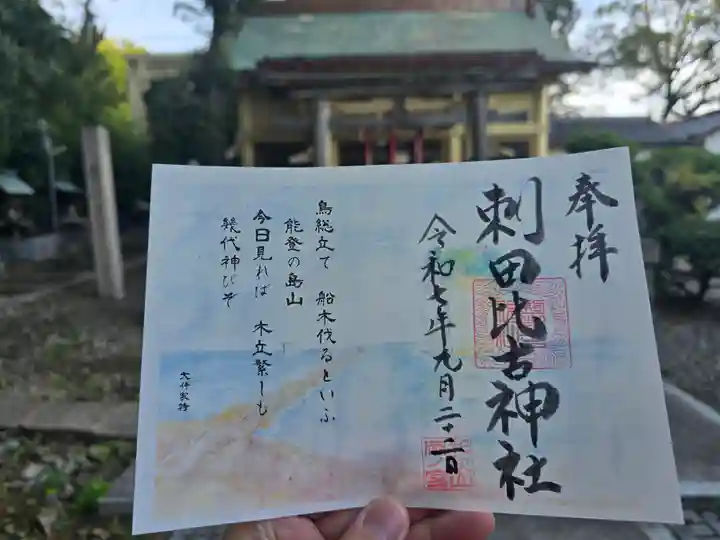 奉拝
刺田比古神社
令和七年九月二十二日
鳥総立て　船木伐るといふ
能登の島山
今日見れば　木立繁しも
幾代神びそ
大伴家持